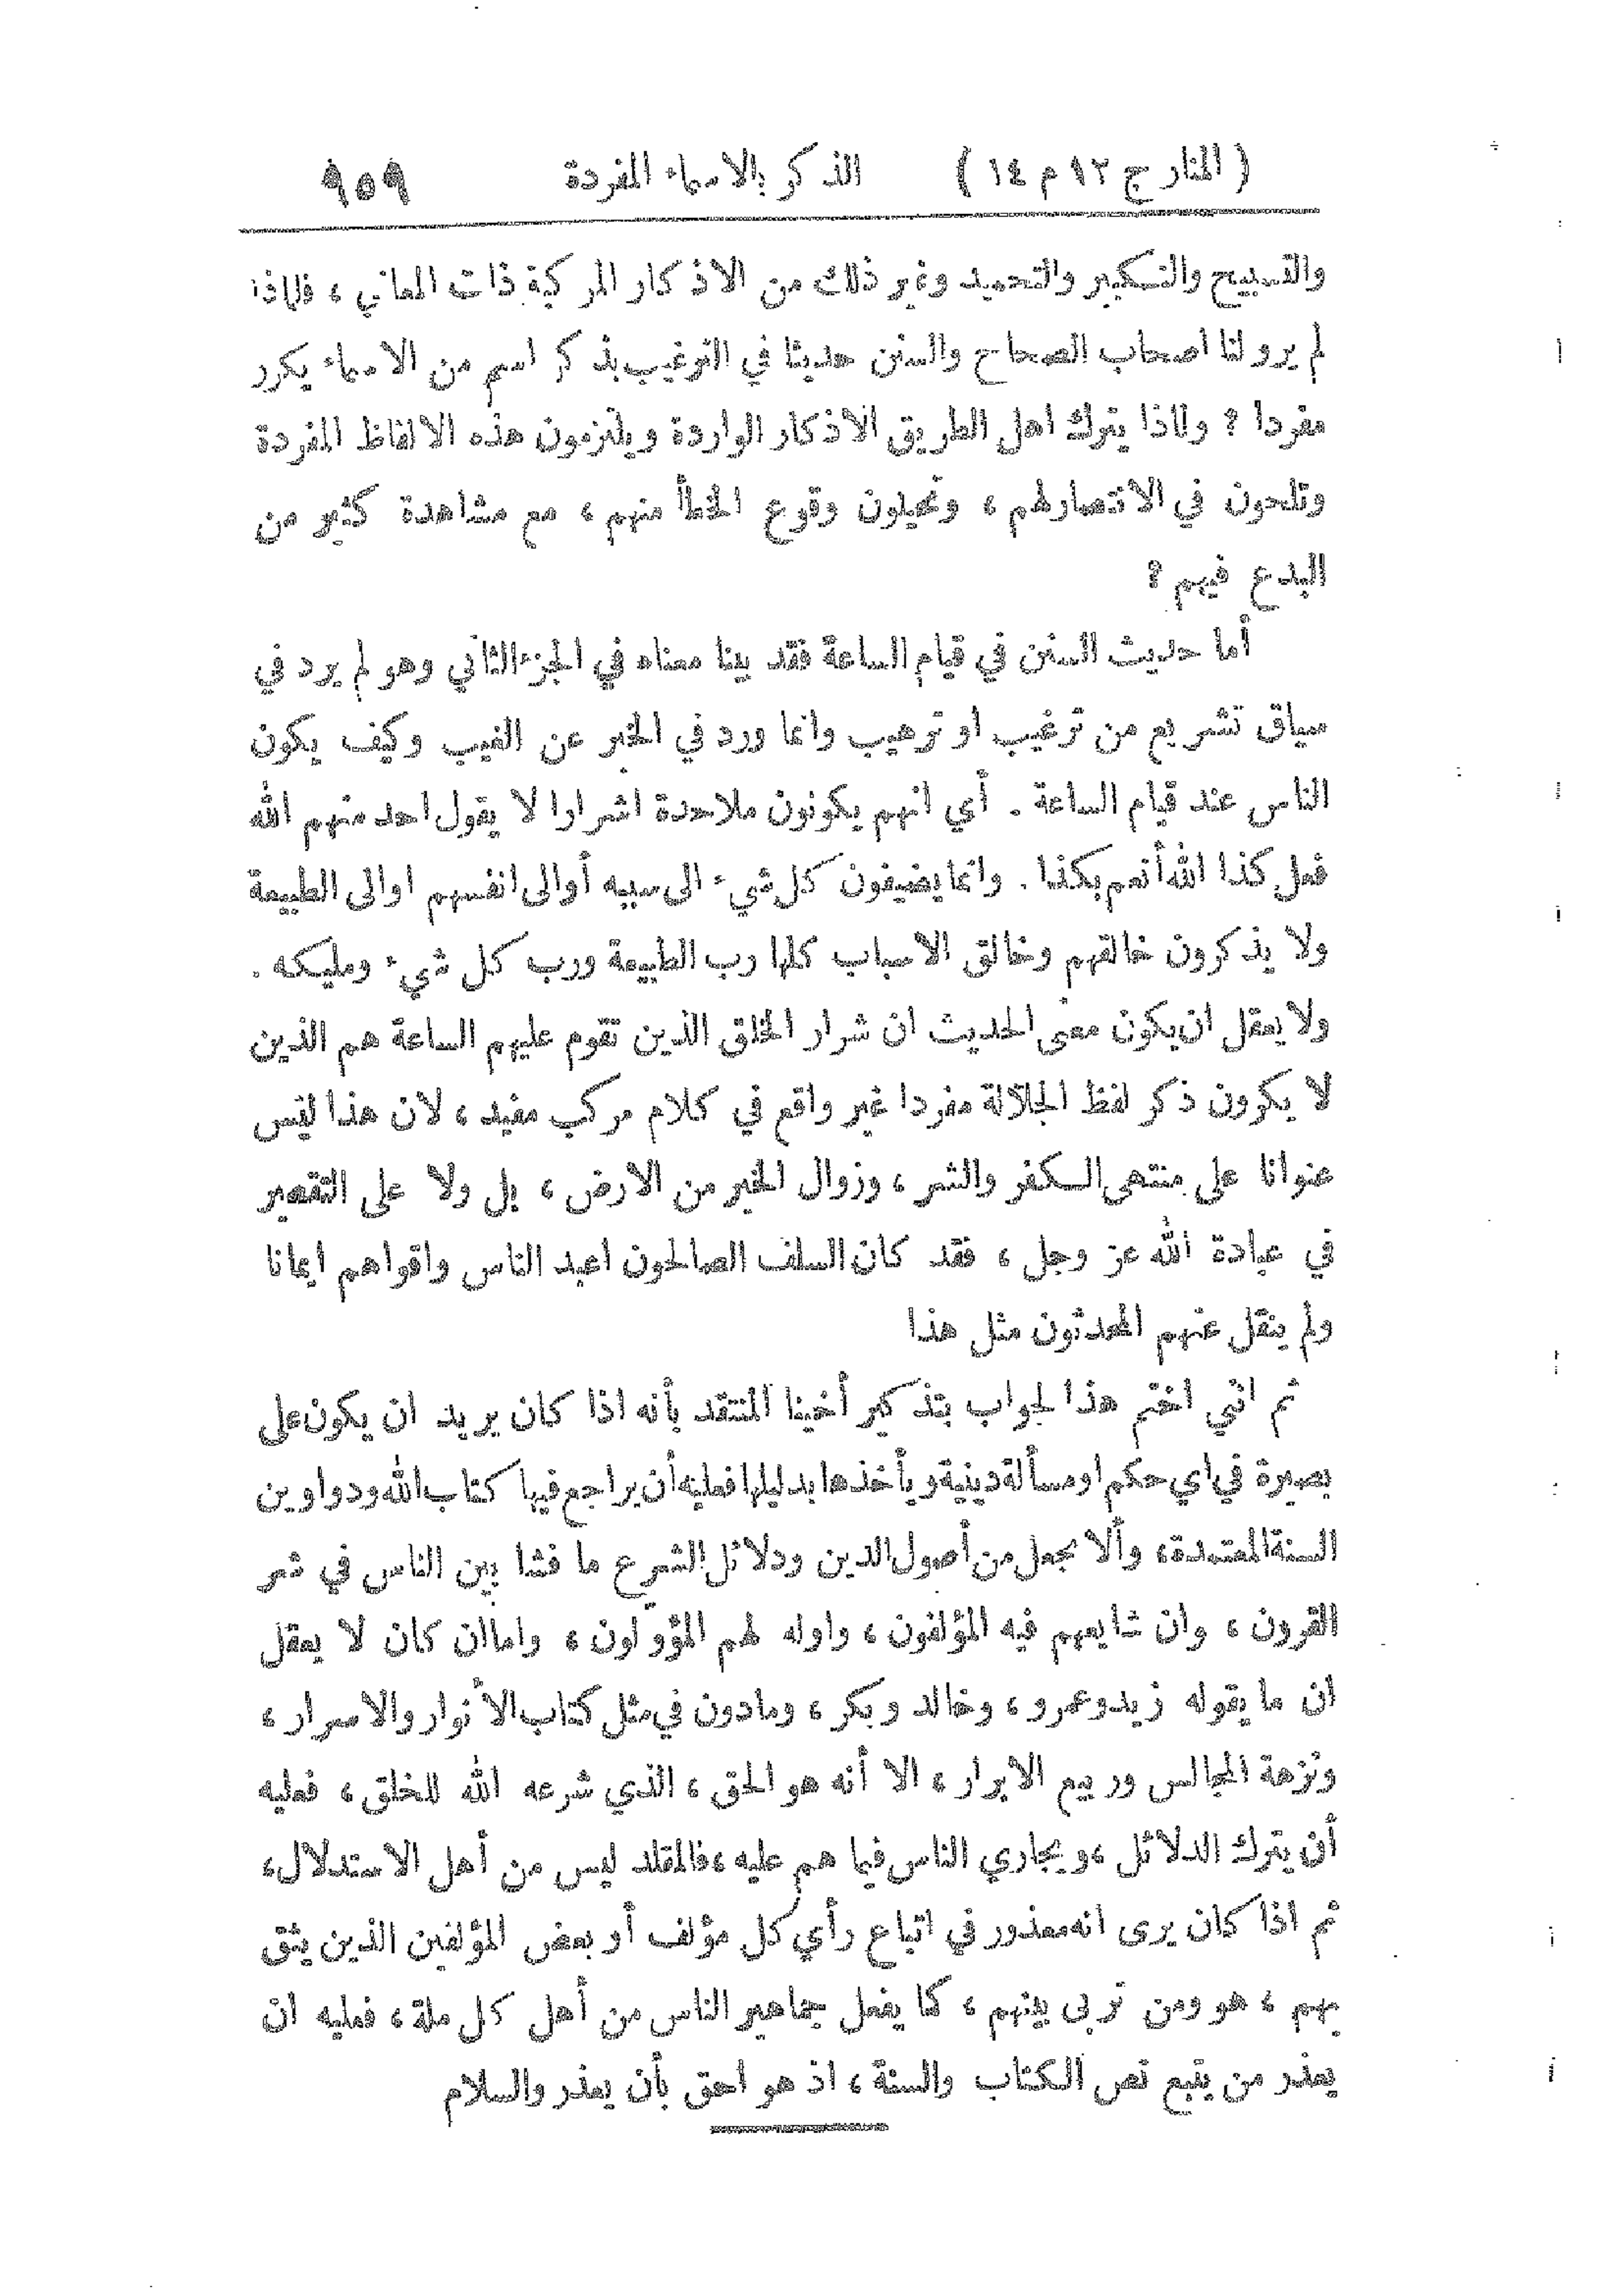 ( المنار ج ١٢ م ١٤ ) الذكر بالاسماء المفردة ٩٥٩
والتسبيح والتكبير والتحميد وغير ذلك من الاذكار المركبة ذات المعاني ، فلماذا
لم يرو لنا اصحاب الصحاح والسنن حديثا في الترغيب بذكر اسم من الاسماء يكرر
مفردا ? ولماذا يترك اهل الطريق الاذكار الواردة ويلتزمون هذه الالفاظ المفردة
وتلحون في الانتصار لهم ، وتحيلون وقوع الخطأ منهم ، مع مشاهدة كثير من
البدع فيهم ?
أما حديث السنن في قيام الساعة فقد بينا معناه في الجزء الثاني وهو لم يرد في
سياق تشريع من ترغيب او ترهيب وانما ورد في الخبر عن الغيب وكيف يكون
الناس عند قيام الساعة . أي انهم يكونون ملاحدة اشرارا لا يقول احد منهم الله
فعل كذا الله أنعم بكذا . وانما يضيفون كل شيء الى سببه أو الى انفسهم او الى الطبيعة
ولا يذكرون خالقهم وخالق الاسباب كلها رب الطبيعة ورب كل شيء ومليكه .
ولا يعقل ان يكون معنى الحديث ان شرار الخلق الذين تقوم عليهم الساعة هم الذين
لا يكرون ذكر لفظ الجلالة مفردا غير واقع في كلام مركب مفيد ، لان هذا ليس
عنوانا على منتهى الكفر والشر ، وزوال الخير من الارض ، بل ولا على التقصير
في عبادة الله عز وجل ، فقد كان السلف الصالحون اعبد الناس واقواهم ايمانا
ولم ينقل عنهم المحدثون مثل هذا
ثم انني اختم هذا لجواب بتذكير أخينا المنتقد بأنه اذا كان يريد ان يكون على
بصيرة في اي حكم او مسألة دينية ويأخذها بدليلها فعليه أن يراجع فيها كتاب الله ودواوين
السنة المعتمدة ، وألا يجعل من أصول الدين ودلائل الشرع ما فشا بين الناس في شر
القرون ، وان شايعهم فيه المؤلفون ، واوله لهم المؤولون ، واما ان كان لا يعقل
ان ما يقوله زيد وعمرو ، وخالد وبكر ، وما دون في مثل كتاب الأنوار والاسرار ،
ونزهة المجالس وربيع الابرار ، الا أنه هو الحق ، الذي شرعه الله للخلق ، فعليه
أن يترك الدلائل ، ويجاري الناس فيما هم عليه ، فالمقلد ليس من أهل الاستدلال ،
ثم اذا كان يرى انه معذور في اتباع رأي كل مؤلف أو بعض المؤلفين الذين يثق
بهم ، هو ومن تربى بينهم ، كما يفعل جماهير الناس من أهل كل ملة ، فعليه ان
يعذر من يتبع نص الكتاب والسنة ، اذ هو احق بأن يعذر والسلام